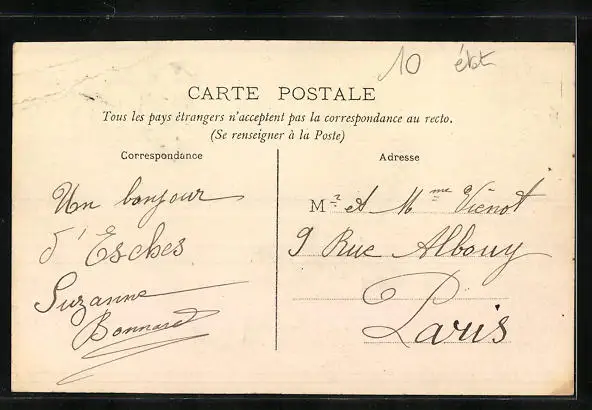 10 état
CARTE POSTALE
Tous les pays étrangers n'acceptent pas la correspondance au recto.
(Se renseigner à la Poste)
Correspondance
Un bonjour
d'Esches
Suzanne
Bonnard
Adresse
Mr et Mme Vienot
9 Rue Albouy
Paris